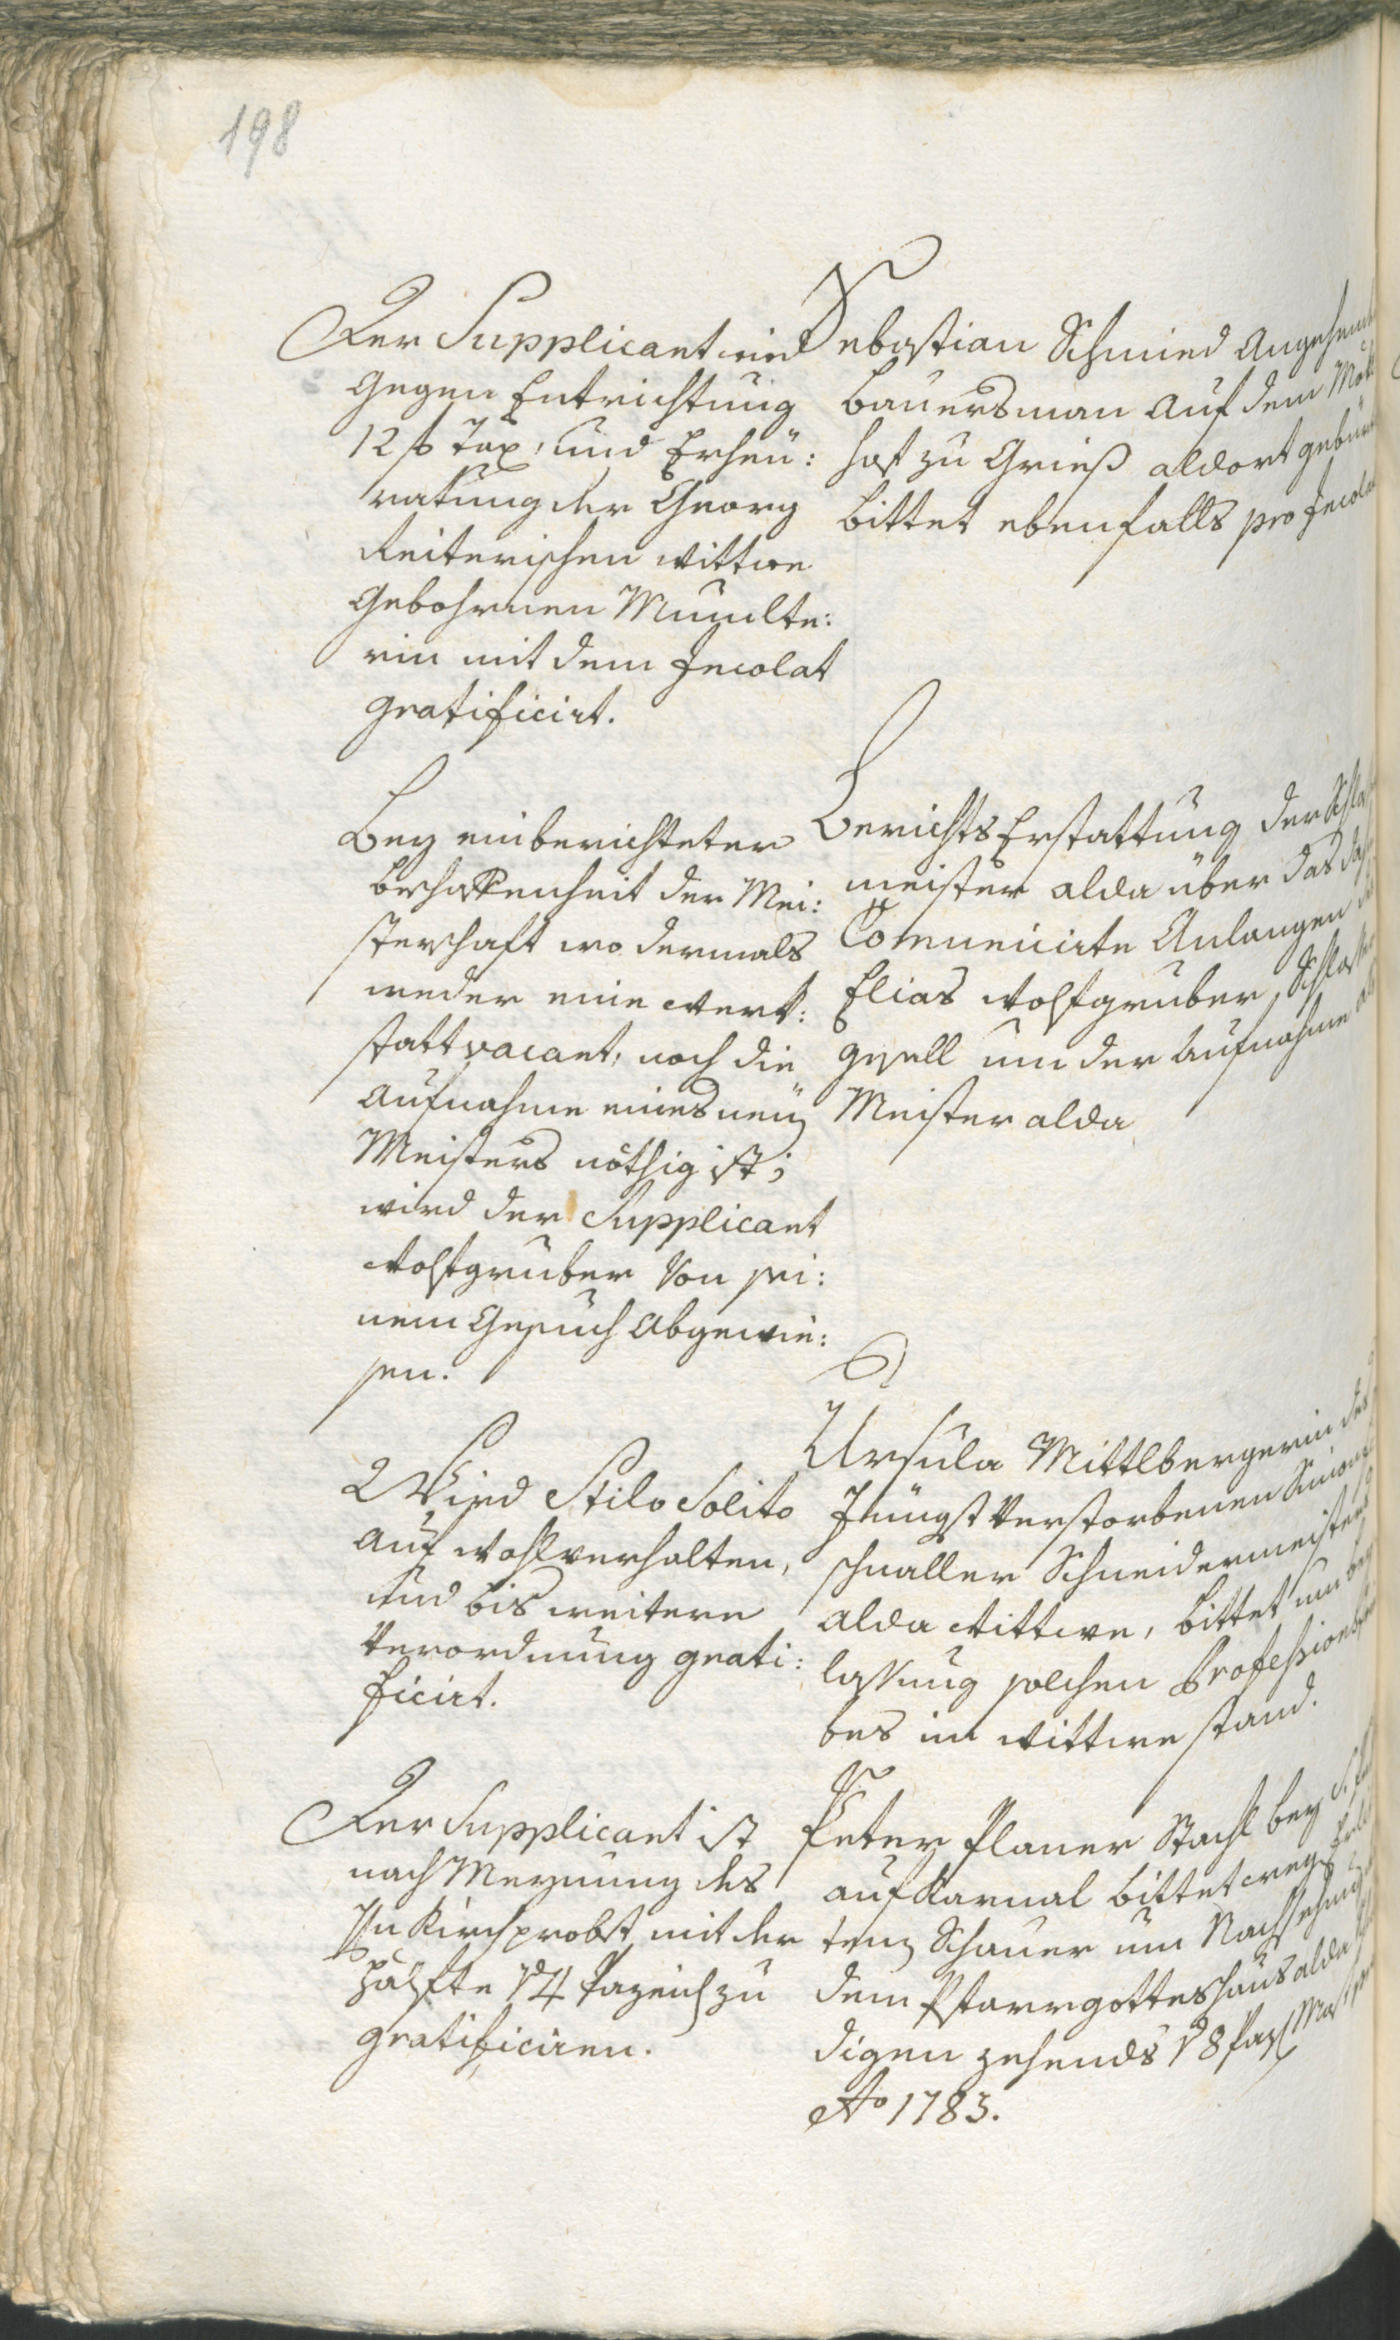 198
Der Supplicant wird
gegen Entrichtung
12 f Tax, und Erheü:
ratung der Georg
Reiterischen Wittwe
gebohrnen Mumlte:
rin mit dem Incolat
gratificirt.
Sebastian Schmied angehend
Bauersman auf dem
hof zu Grieß aldort gebür
bittet ebenfalls pro Incola
Bey einberichteter
Beschaffenheit der Mei:
sterschaft wo dermals
weder eine Werk:
statt vacant, noch die
Aufnahme eines neüen
Meisters nöthig ist;
wird der Supplicant
Wolfgruber von sei:
nem Gesuch abgewie:
sen.
Berichts Erstattung der
meister alda über das
Comunicirte Anlangen
Elias Wolfgruber Schlosser
gesell um der Aufnahme als
Meister alda
Wird Stilo Solito
auf Wohlverhalten,
und bis weitere
Verordnung grati:
ficirt.
Ursula Mittlbergerin des
Jüngst Verstorbenen Simon
schnaller Schneidermeisters
alda Wittwe, bittet um bey
lassung solchen Profeßions
bes im Wittwe stand.
Der Supplicant ist
nach Meynung des
Hn Kirchprobst mit der
Hälfte 14 Pazeid zu
gratificiren.
Peter Planer Stachl bey
auf Karnal bittet wegen
tem Schauer um Nachsehung
dem Pfarrgotteshaus alda
digen zehends 28 Paz Most
Ao 1783.